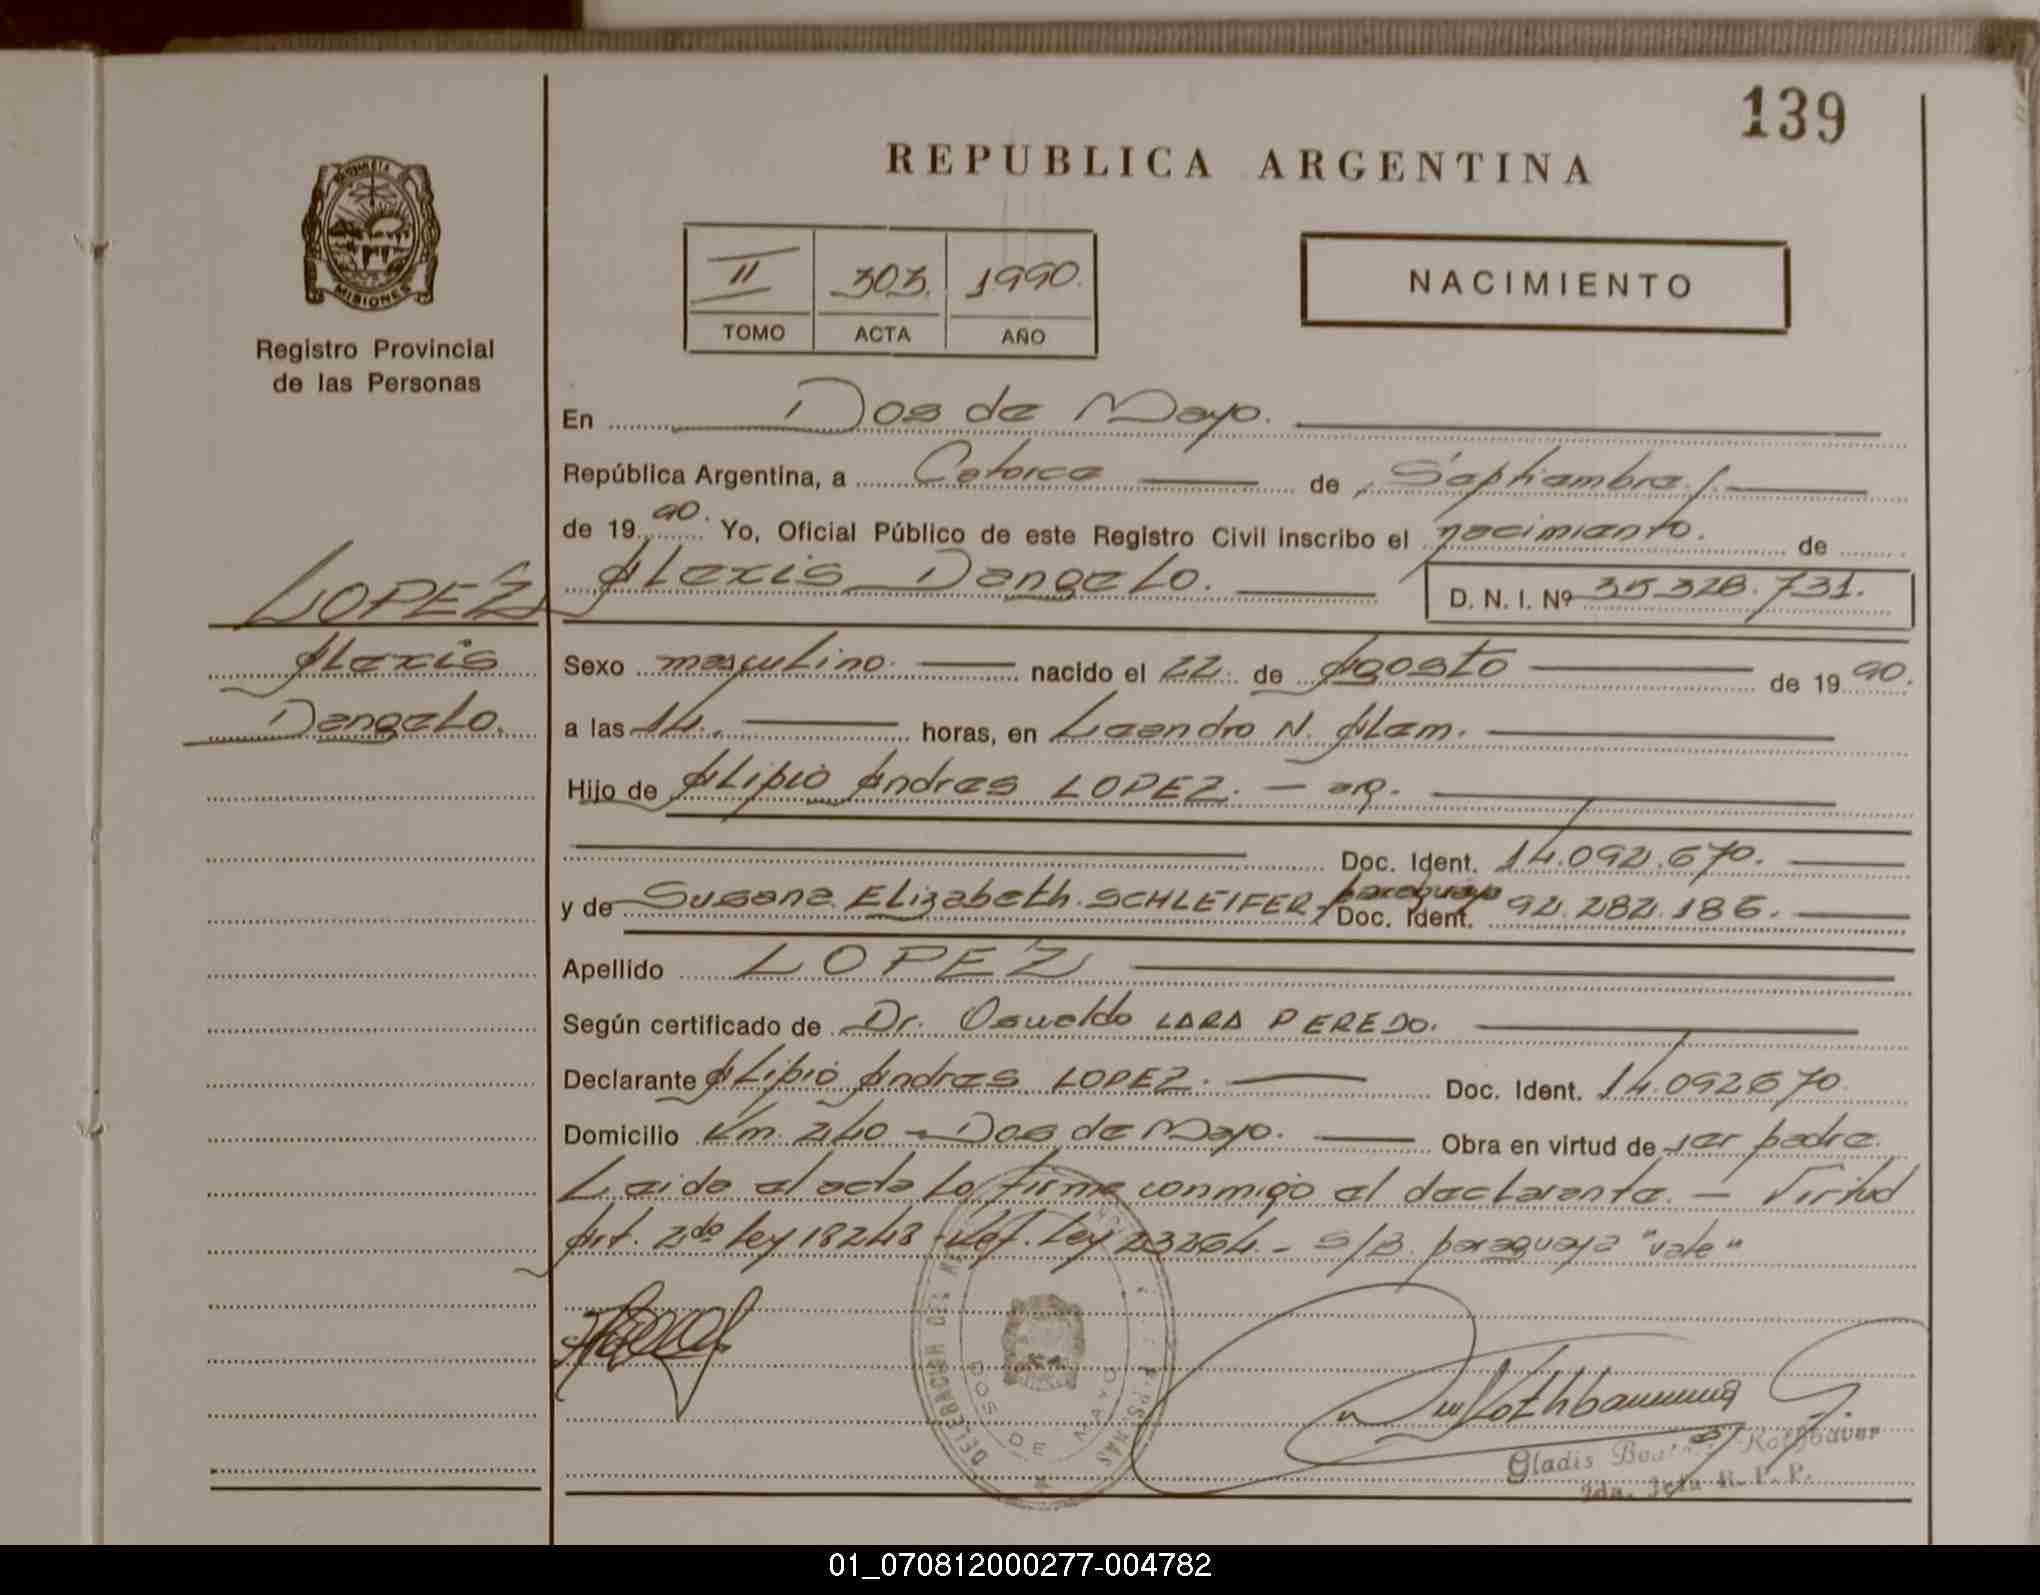 139
REPUBLICA ARGENTINA
PROVINCIA
MISIONES
Registro Provincial
de las Personas
II 303. 1990.
TOMO ACTA AÑO
NACIMIENTO
En Dos de Mayo.
República Argentina, a Catorce de Septiembre
de 1990. Yo, Oficial Público de este Registro Civil inscribo el nacimiento. de
Alexis Dangelo. D. N. I. Nº 35.328.731.
LOPEZ
Alexis
Dangelo.
Sexo masculino. nacido el 22. de Agosto de 1990.
a las 14. horas, en Leandro N. Alem.
Hijo de Alipio Andres LOPEZ. - arg.
Doc. Ident. 14.092.670.
y de Susana Elizabeth SCHLEIFER - paraguaya Doc. Ident. 92.282.186.
Apellido LOPEZ
Según certificado de Dr. Osvaldo LARA PEREDO.
Declarante Alipio Andres LOPEZ. Doc. Ident. 14.092670
Domicilio Km. 240 - Dos de Mayo. Obra en virtud de ser padre.
Leida el acta lo firma conmigo el declarante. - Virtud
Art. 2do ley 18248 - Ref. Ley 23264. - S/B. paraguaya "vale"
DOS DE MAYO
Gladis Rothbauer
R. P. P.
01_070812000277-004782